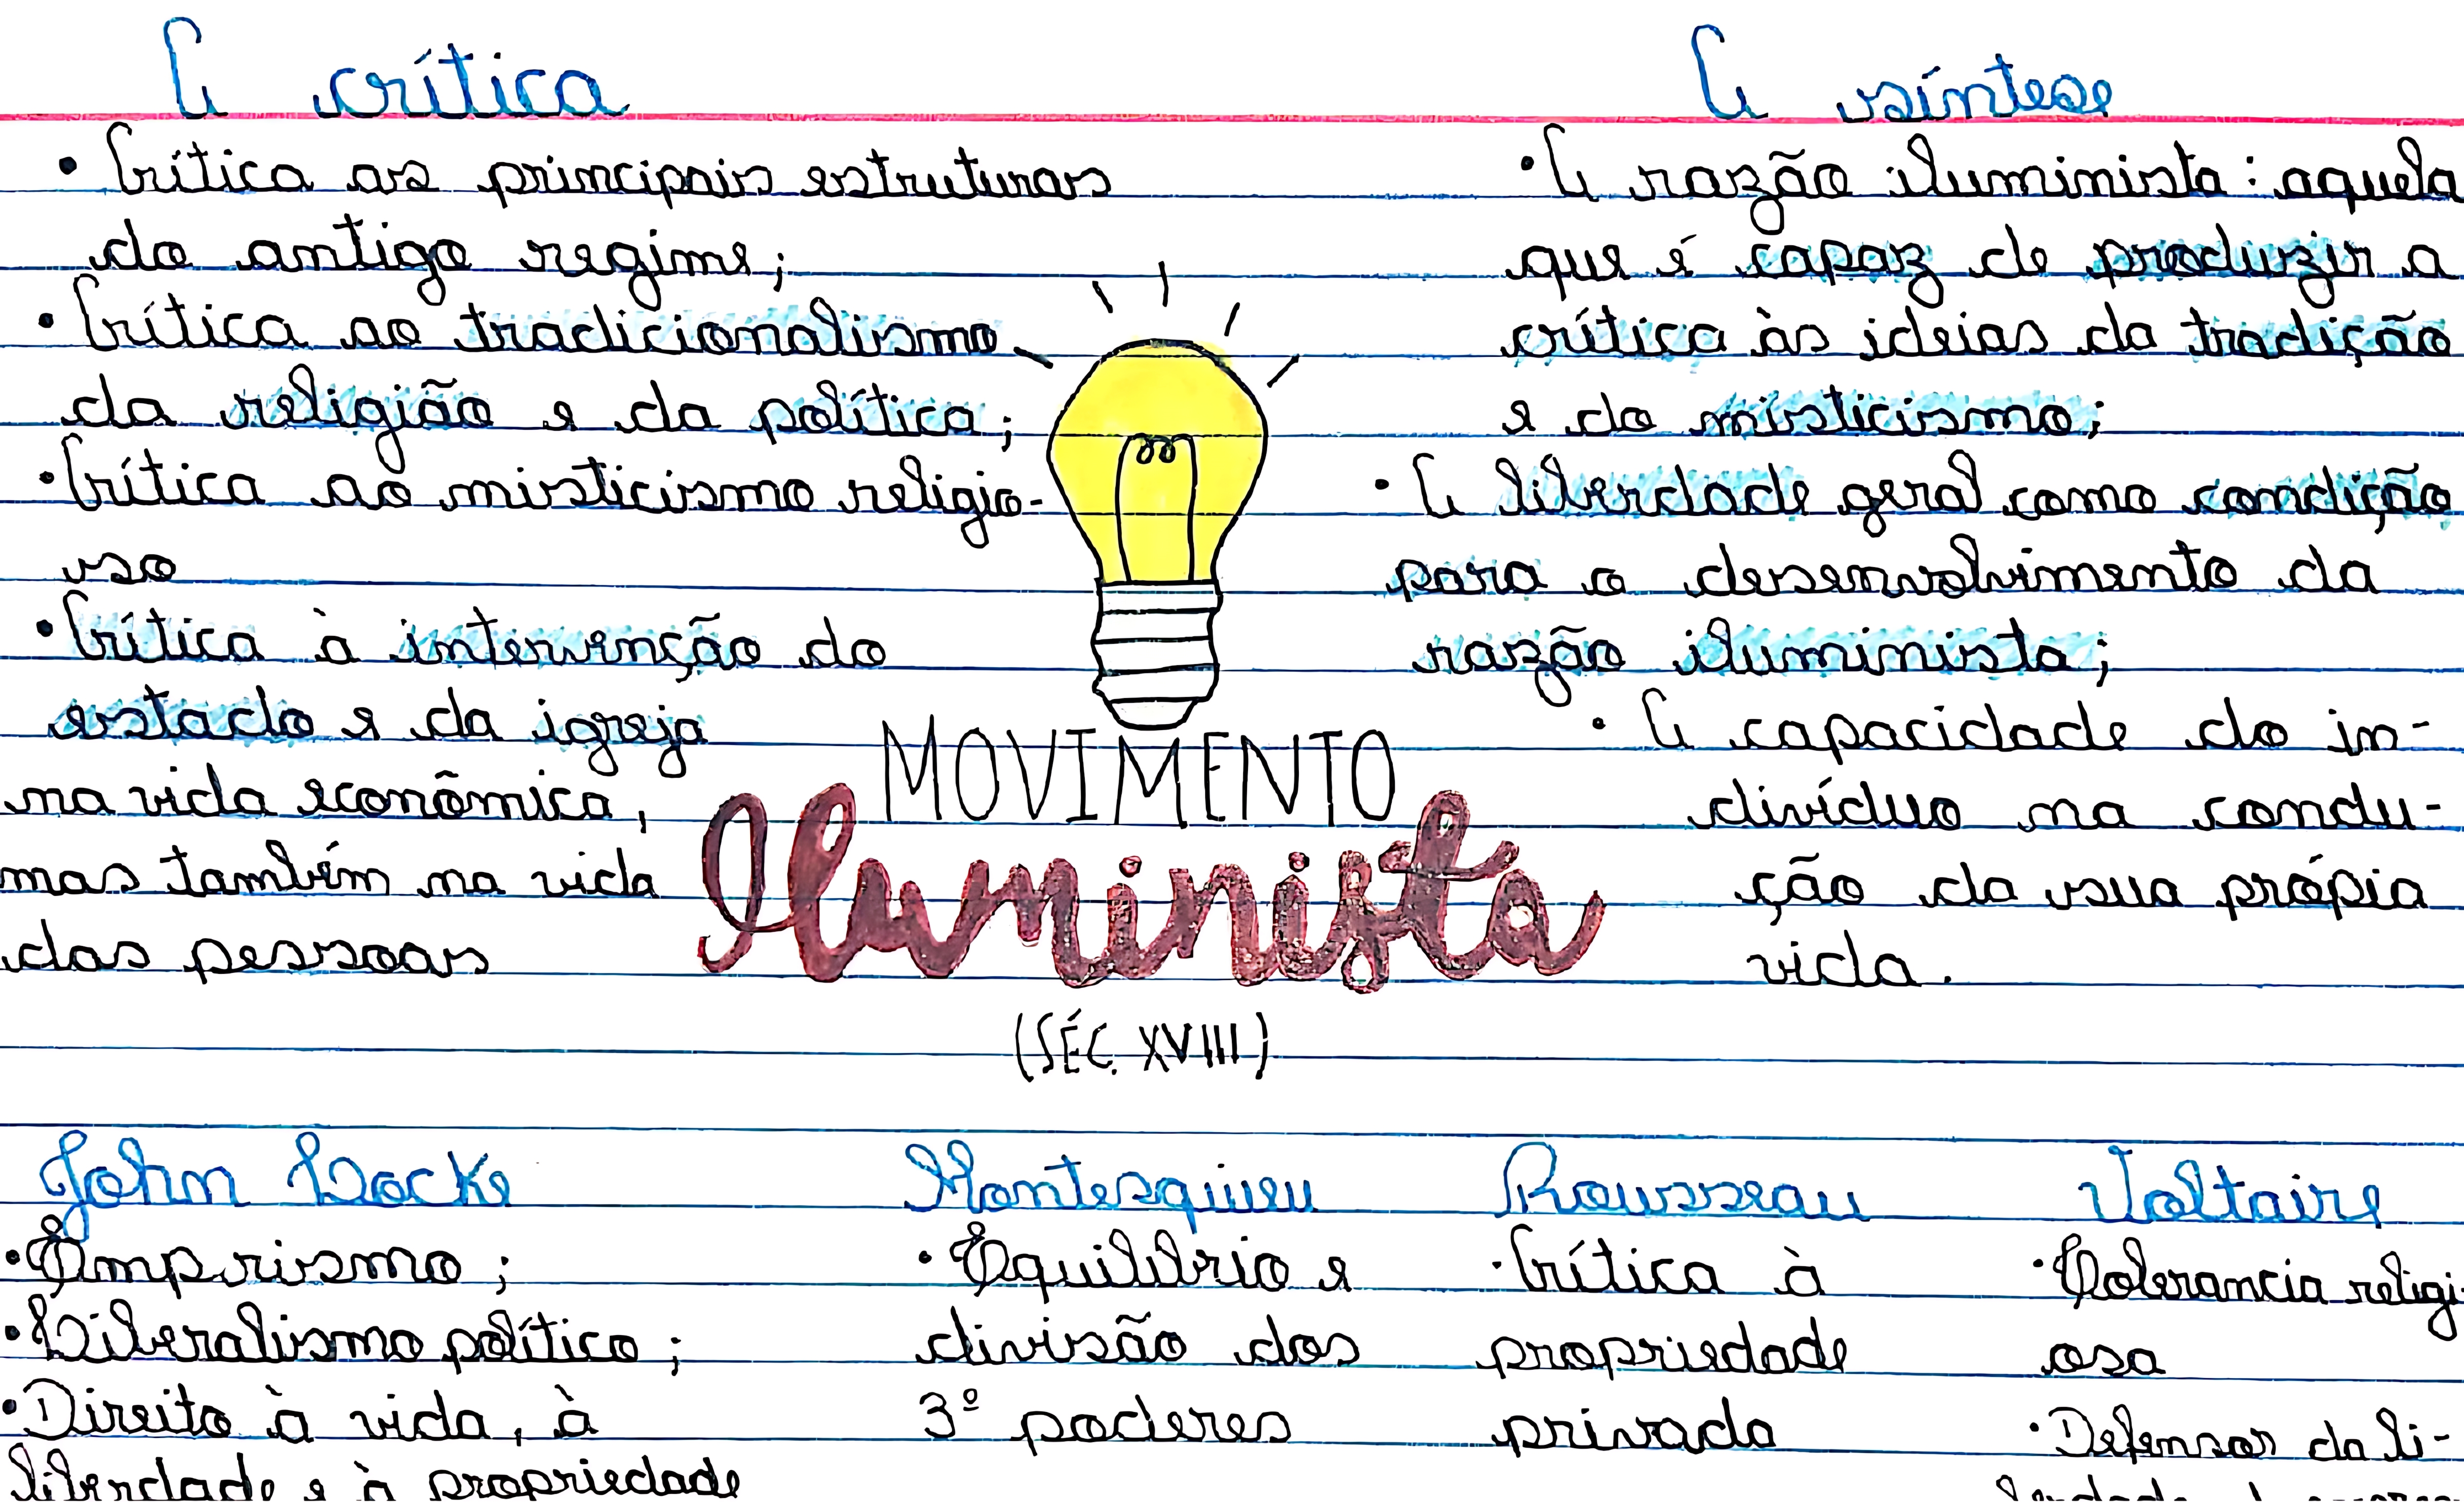 A crítica
• Crítica as principais estruturas
do antigo regime;
• Crítica ao tradicionalismo
da religião e da política;
• Crítica ao misticismo religio-
so
• Crítica à intervenção do
estado e da igreja
na vida econômica,
mas também na vida
das pessoas
A síntese
• A razão iluminista: aquela
que é capaz de produzir a
crítica às ideias da tradição
e do misticismo;
• A liberdade geral como condição
para o desenvolvimento da
razão iluminista;
• A capacidade do in-
divíduo na condu-
ção da sua própia
vida.
MOVIMENTO
Iluminista
(SÉC. XVIII)
John Locke
• Empirismo;
• Liberalismo político;
• Direito à vida, à
liberdade e à propriedade
Montesquieu
• Equilibrio e
divisão dos
3º poderes
Rousseau
• Crítica à
propriedade
privada
Voltaire
• Tolerancia religi-
osa
• Defensor da li-
berdade